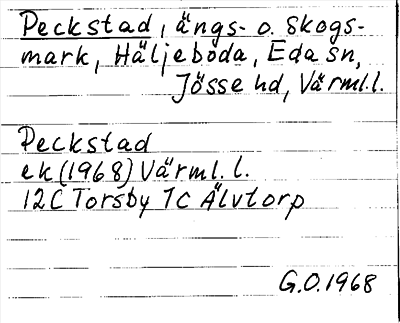 Peckstad, ängs- o. skogs-
mark, Häljeboda, Eda sn,
Jösse hd, Värml.l.
Peckstad
ek (1968) Värml. l.
12C Torsby 7c Älvtorp
G.O. 1968